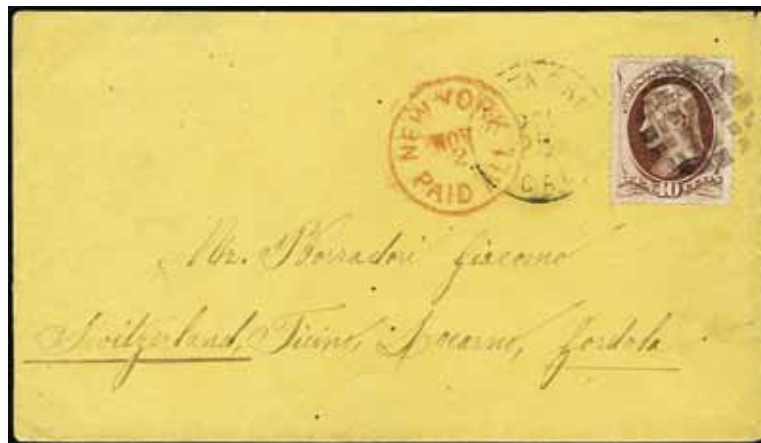 NEW YORK
NOV
PAID ALL
10
Mr. Borradori Giacomo
Switzerland, Ticino, Locarno, Gordola